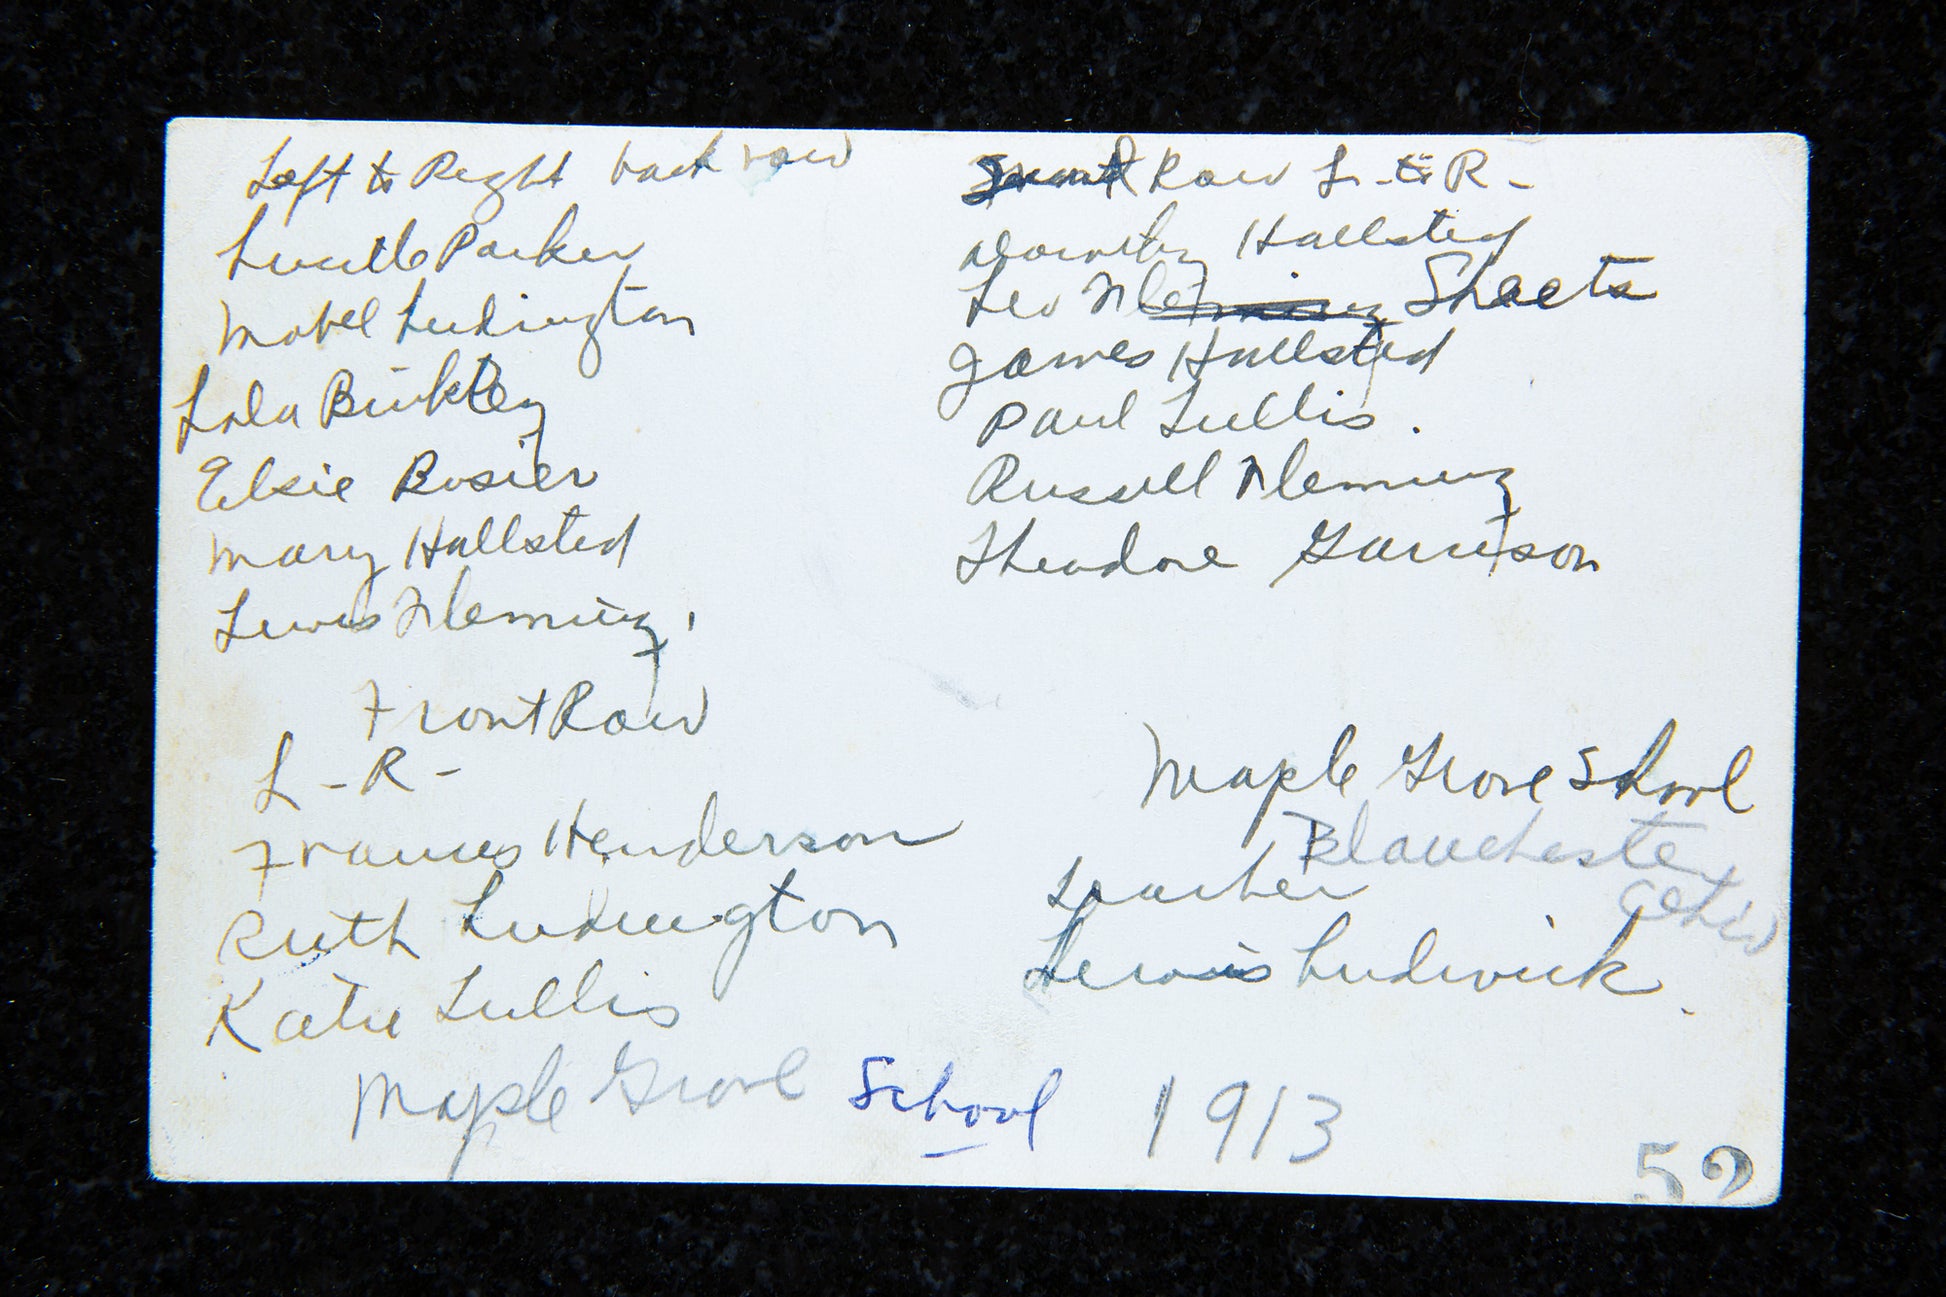 Left to Right back row
Lucille Parker
Mabel Ludington
Lola Binkley
Elsie Bosier
Mary Hallsted
Lewis Fleming.
Front Row
L - R -
Frances Henderson
Ruth Ludington
Katie Lullis
Maple Grove School 1913
Front Row L - to R -
Dorothy Hallsted
Leo Fleming Sheets
James Hallsted
Paul Lullis.
Russell Fleming
Theodore Garrison
Maple Grove School
Blanchester
Ohio
Teacher
Lewis Ludwick.
52